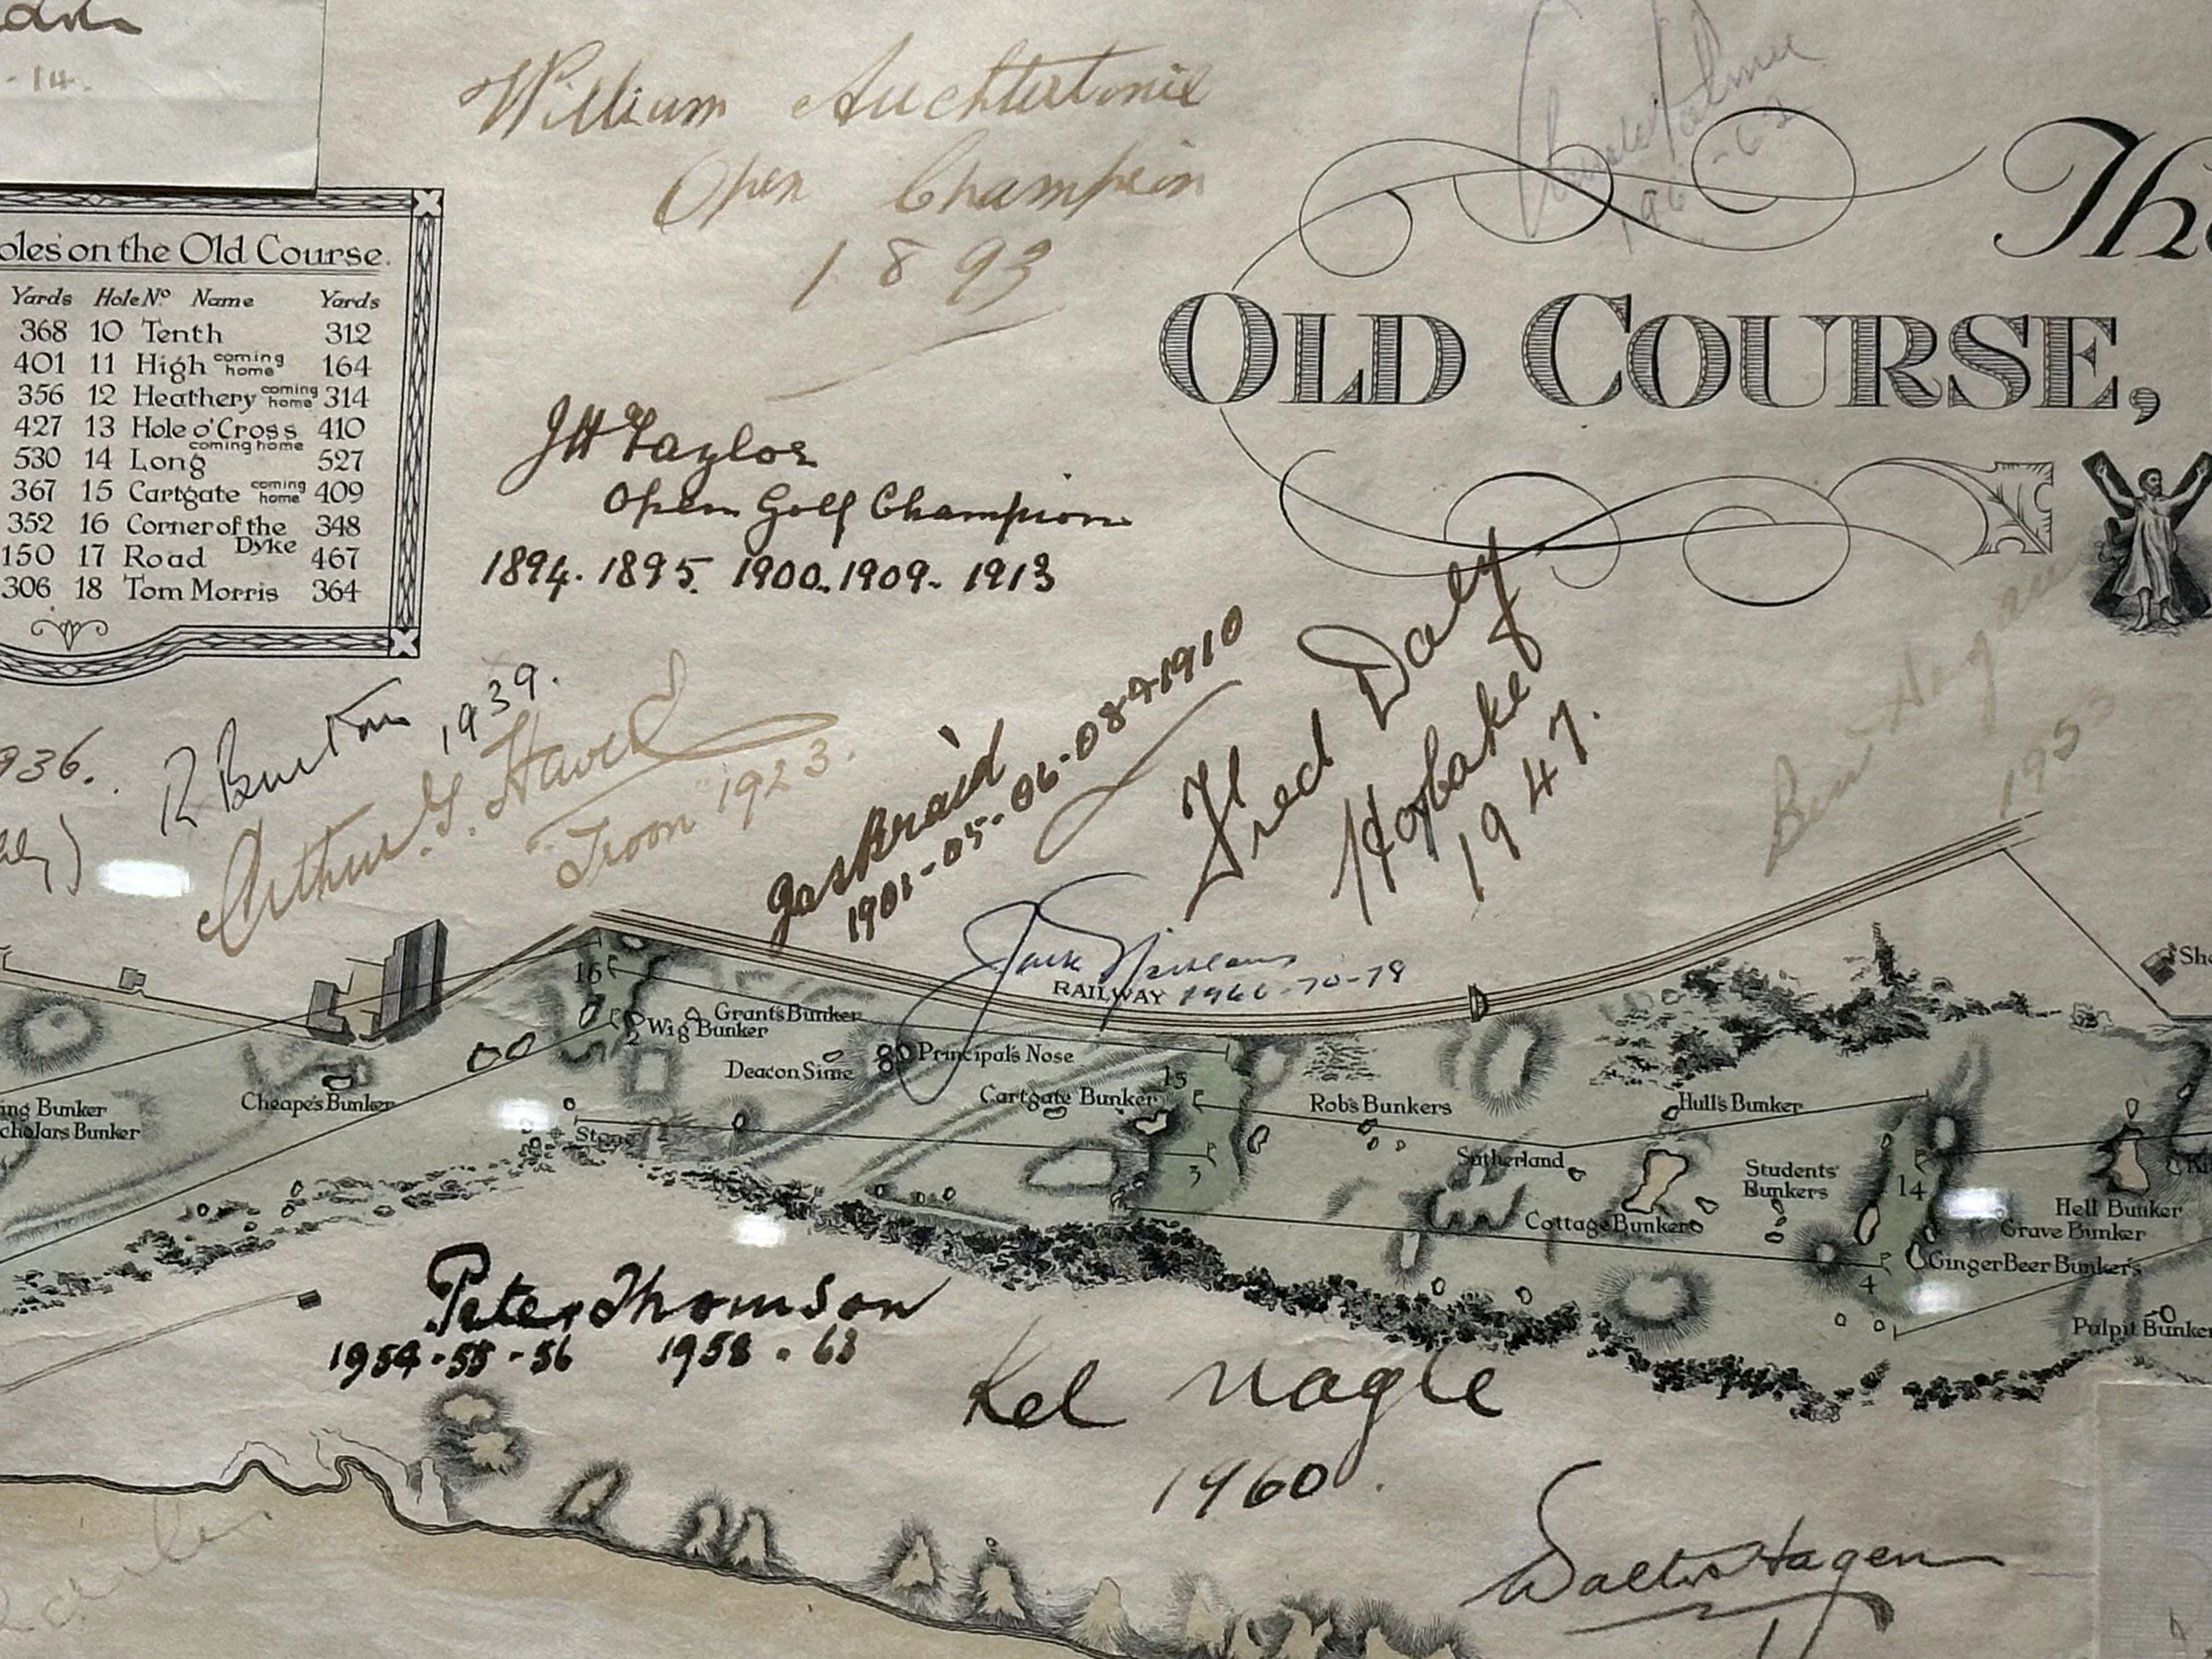 - 14.
William Auchterlonie
Open Champion
1893
Arnold Palmer
1961 - 62
The
OLD COURSE,
oles on the Old Course.
Yards Hole Nº Name Yards
368 10 Tenth 312
401 11 High coming home 164
356 12 Heathery coming home 314
427 13 Hole o'Cross coming home 410
530 14 Long 527
367 15 Cartgate coming home 409
352 16 Corner of the Dyke 348
150 17 Road 467
306 18 Tom Morris 364
JH Taylor
Open Golf Champion
1894. 1895. 1900. 1909. 1913
936.
R Burton 1939.
Arthur G. Havers
Troon 1923.
Jas Braid
1901-05-06-08-1910
Fred Daly
Hoylake
1947.
Ben Hogan
1953
Jack Nicklaus
1966-70-78
RAILWAY
She
16
Grant's Bunker
Wig Bunker
2
Deacon Sime
Principal's Nose
Cheape's Bunker
Cartgate Bunker
15
Rob's Bunkers
Hull's Bunker
ing Bunker
cholars Bunker
Stone
3
Sutherland
Students' Bunkers
14
Cottage Bunker
Hell Bunker
Grave Bunker
Ginger Beer Bunker's
4
Pulpit Bunker
Peter Thomson
1954-55-56 1958-63
Kel Nagle
1960.
Walter Hagen